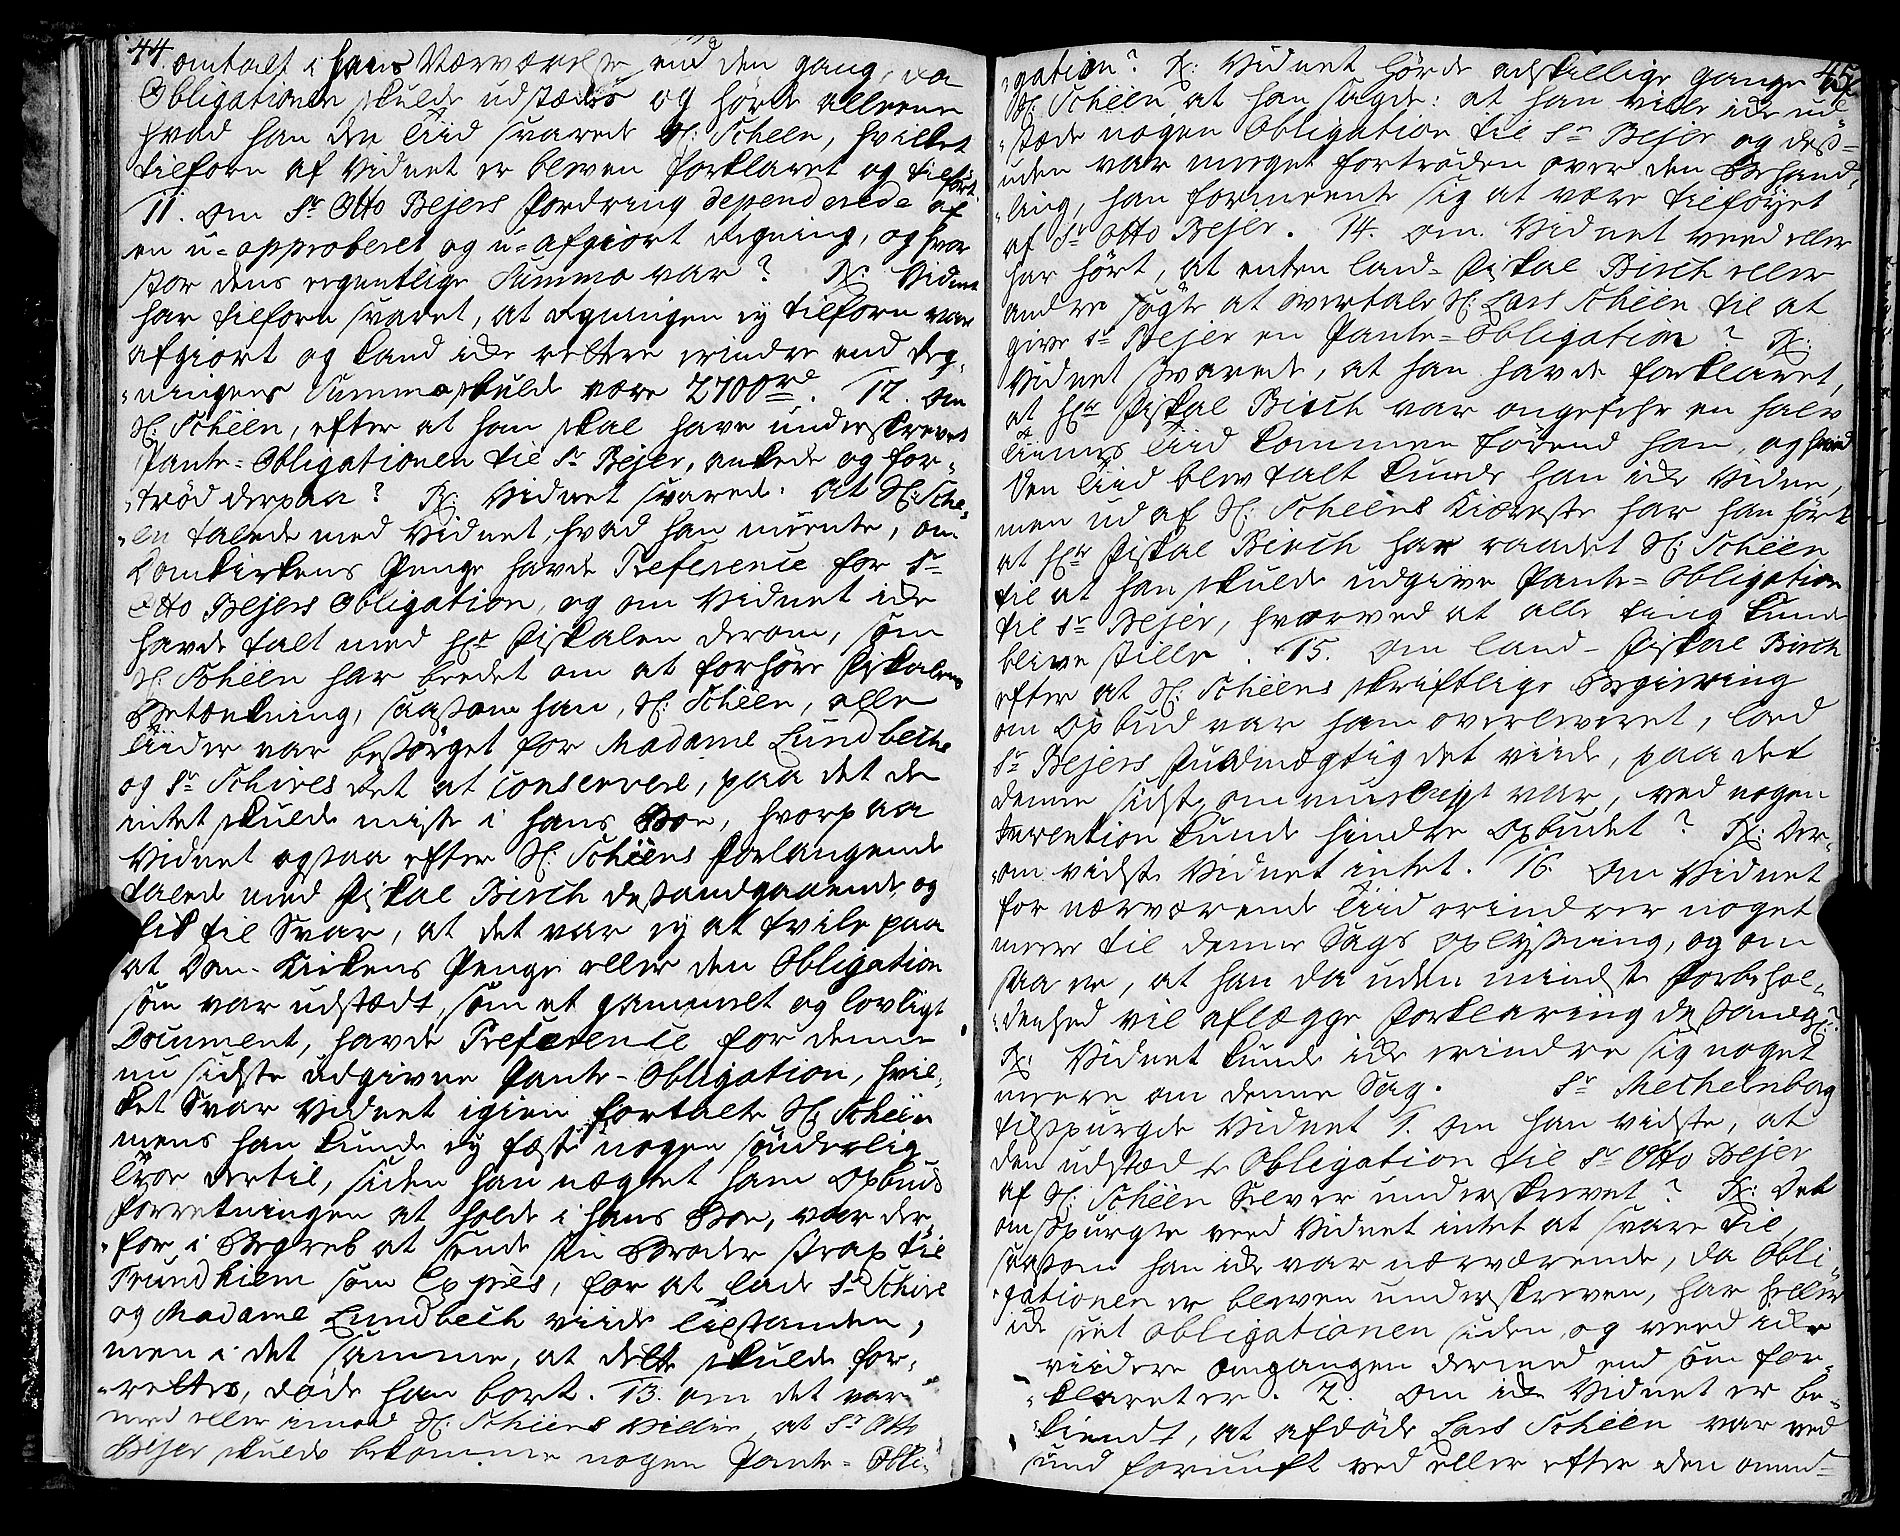 44.
omtalt i hans Nærværelse end den gang, da
Obligationen skulde udstædes og hørte alleene
hvad han den Tiid svarede H: Scheen, hvilket
tilforn af Vidnet er bleven forklaret og tilført
11. Om Sr Otto Bejers Fordring dependerede af
en u-approberet og u-afgiort Regning, og hvor
stor dens egentlige Summa var? R: Vidnet
har tilforn svaret, at Regningen ey tilforn var
afgiort og kand ikke rettere erindre end Reg-
ningens Summa skulde være 2700rd. 12. Om
H: Schéen, efter at han skal have underskrevet
Pante-Obligationen til Sr Bejer, ankede og for-
trød derpaa? R: Vidnet svarede: At H: Sche-
en talede med Vidnet, hvad han meente, om
Domkirkens Penge havde Preference for Sr
Otto Bejers Obligation, og om Vidnet ikke
havde talt med Hr Fiskalen derom, som
H: Schéen har beedet om at forhøre Fiskalens
Betænkning, saasom han, H: Schéen, alle
Tiider var besørget for Madame Lundbeche
og Sr Schives Ret at conservere, paa det de
intet skulde miste i hans Boe, hvorpaa
Vidnet ogsaa efter H: Schéens Forlangende
talede med Fiskal Birch desangaaende, og
fik til Svar, at det var ey at tvile paa
at Dom-Kirkens Penge eller den Obligation
som var udstædt, som et gammelt og lovligt
Document, havde Preference for denne
nu sidste udgivne Pante-Obligation, hvil-
ket Svar Vidnet igien fortalte H: Schéen
mens han kunde ey fæste nogen sønderlig
Troe dertil, siden han nægtet ham Opbuds
Forretningen at holde i hans Boe, var der-
for i Begreb at sende sin Broder strax til
Trundhiem som Expres, for at lade Sr Schive
og Madame Lundbech viide Tilstanden,
men i det samme, at dette skulde for-
rettes, døde han bort. 13. om det var
med eller imod H: Schéens Villie, at Sr Otto
Bejer skulde bekomme nogen Pante-Obli-
45.
gation? R: Vidnet hørde adskillige gange
H: Schéen at han sagde: at han ville ikke ud-
stæde nogen Obligation til Sr Bejer og des-
uden var meget fortrøden over den Behand-
ling, han formeente sig at være tilføyet
af Sr Otto Bejer. 14. Om Vidnet veed eller
har hørt, at enten Land-Fiskal Birch eller
andre søgte at overtale H: Lars Schéen til at
give Sr Bejer en Pante-Obligation? R:
Vidnet svarede, at han havde forklaret,
at Hr Fiskal Birch var ongefehr en halv
Times Tiid kommen førend han, og hvad
den Tiid blev talt kunde han ikke vidne,
men ud af H: Schéens Kiæreste har han hørt
at Hr Fiskal Birch har raadet H: Schéen
til at han skulde udgive Pante-Obligation
til Sr Bejer, hvorved at alle ting kunde
blive stille. 15. Om Land-Fiskal Birch
efter at H: Schéens skriftlige Begiering
om Opbud var ham overleveret, loed
Sr Bejers Fuldmægtig det viide, paa det
denne sidst ommelte var, ved nogen
Invention kunde hindre Opbudet? R: Der-
om vidste Vidnet intet. 16. Om Vidnet
for nærværende Tiid erindrer noget
meere til denne Sags Oplysning, og om
saa er, at han da uden mindste Forbehol-
denhed vil aflægge Forklaring desang:?
R: Vidnet kunde ikke erindre sig noget
meere om denne Sag. Sr Mechelnbog
tilspurgde Vidnet 1. Om han vidste, at
den udstædte Obligation til Sr Otto Bejer
af H: Schéen Selv er underskrevet? R: Det
omspurgte veed Vidnet intet at svare til,
saasom han ikke var nærværende, da Obli-
gationen er bleven underskreven, har heller
ikke seet Obligationen siden, og veed ikke
viidere Omgangen dermed end som for-
klaret er. 2. Om ikke Vidnet er be-
kiendt, at afdøde Lars Schéen var ved
sund fornuft ved eller efter den omm-